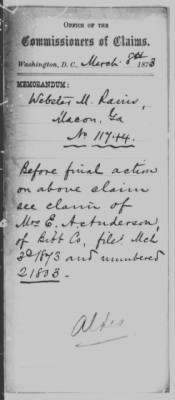 OFFICE OF THE
Commissioners of Claims.
Washington, D.C. March 8th 1873
MEMORANDUM:
Webster M. Rains,
Macon, Ga
No 11744.
Before final action
on above claim
see claim of
Mrs E. A. Anderson,
of Bibb Co, filed Mch
3d 1873 and numbered
21803.